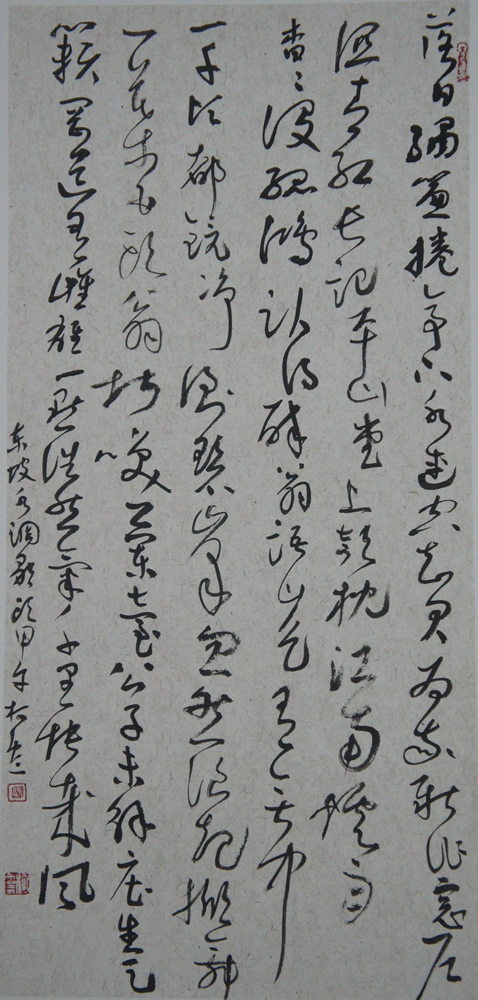 落日繡簾捲亭下水連空知君為我新作窗户
湿青红长記平山堂上欹枕江南煙雨
杳杳没孤鴻认得醉翁语山色有無中
一千顷都镜净倒碧峰忽然浪起掀舞
一叶白头翁堪笑蘭台公子未解庄生天
籁刚道有雌雄一點浩然氣千里快哉風
东坡水调歌头甲午